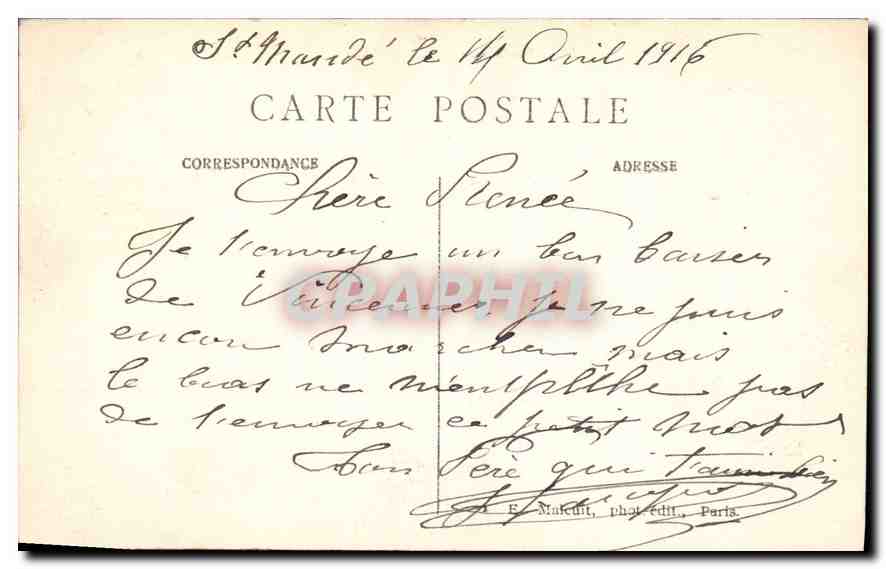 St Mandé le 14 Avril 1916
CARTE POSTALE
CORRESPONDANCE
ADRESSE
Chère Renée
Je t'envoye un bon baiser
de Vincennes je ne puis
encore marcher mais
le bras ne m'empêche pas
de t'envoyer ce petit mot
Ton Père qui t'aime bien
E. Malcuit, phot. édit., Paris.
CPAPHIL